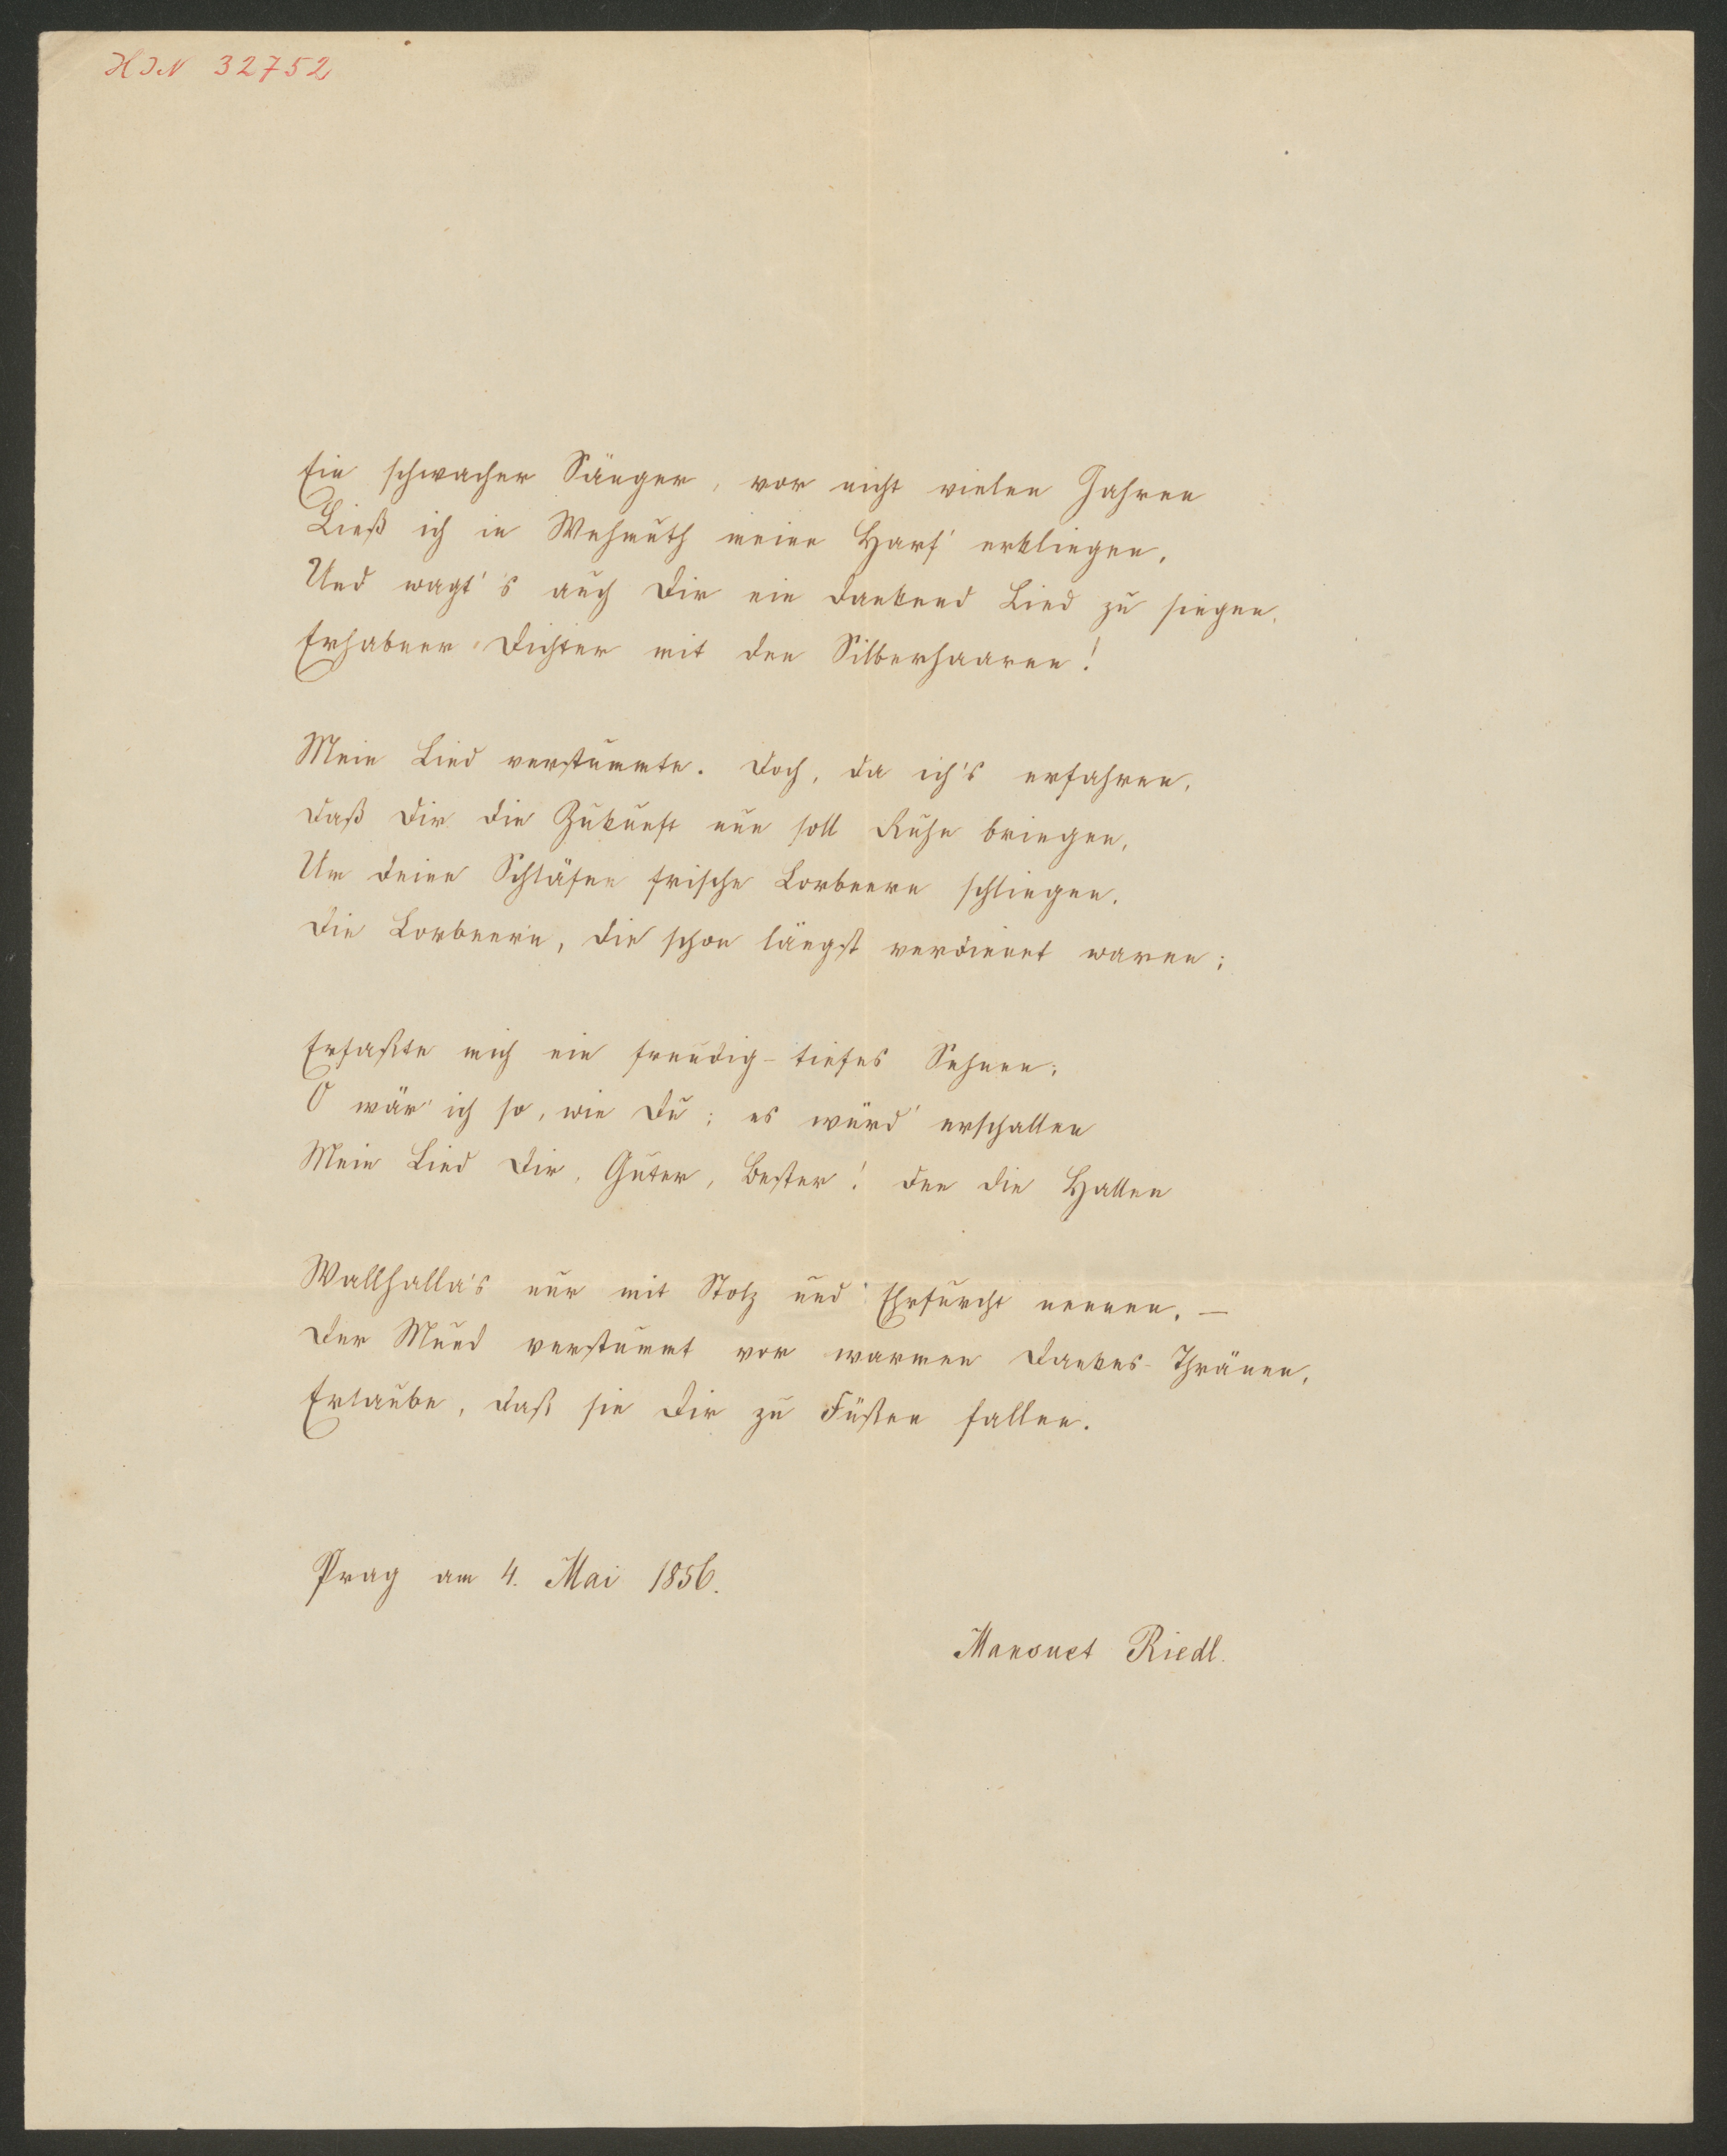 HIN 32752
Ein schwacher Sänger, vor nicht vielen Jahren
Ließ ich in Wehmuth meine Harf' erklingen,
Und wagt's auch Dir ein dankend Lied zu singen,
Erhabner Dichter mit den Silberhaaren!
Mein Lied verstummte. Doch, da ich's erfahren,
Daß Dir die Zukunft nun soll Ruhe bringen,
Um deine Schläfen frische Lorbeern schlingen,
Die Lorbeern, die schon längst verdienet waren;
Erfaßte mich ein freudig-tiefes Sehnen;
O wär' ich so, wie Du; es würd' erschallen
Mein Lied Dir, Guter, Bester! den die Hallen
Wallhalla's nur mit Stolz und Ehrfurcht nennen. —
Der Mund verstummt vor warmen Dankes-Thränen,
Erlaube, daß sie Dir zu Füßen fallen.
Prag am 4. Mai 1856.
Mansuet Riedl.